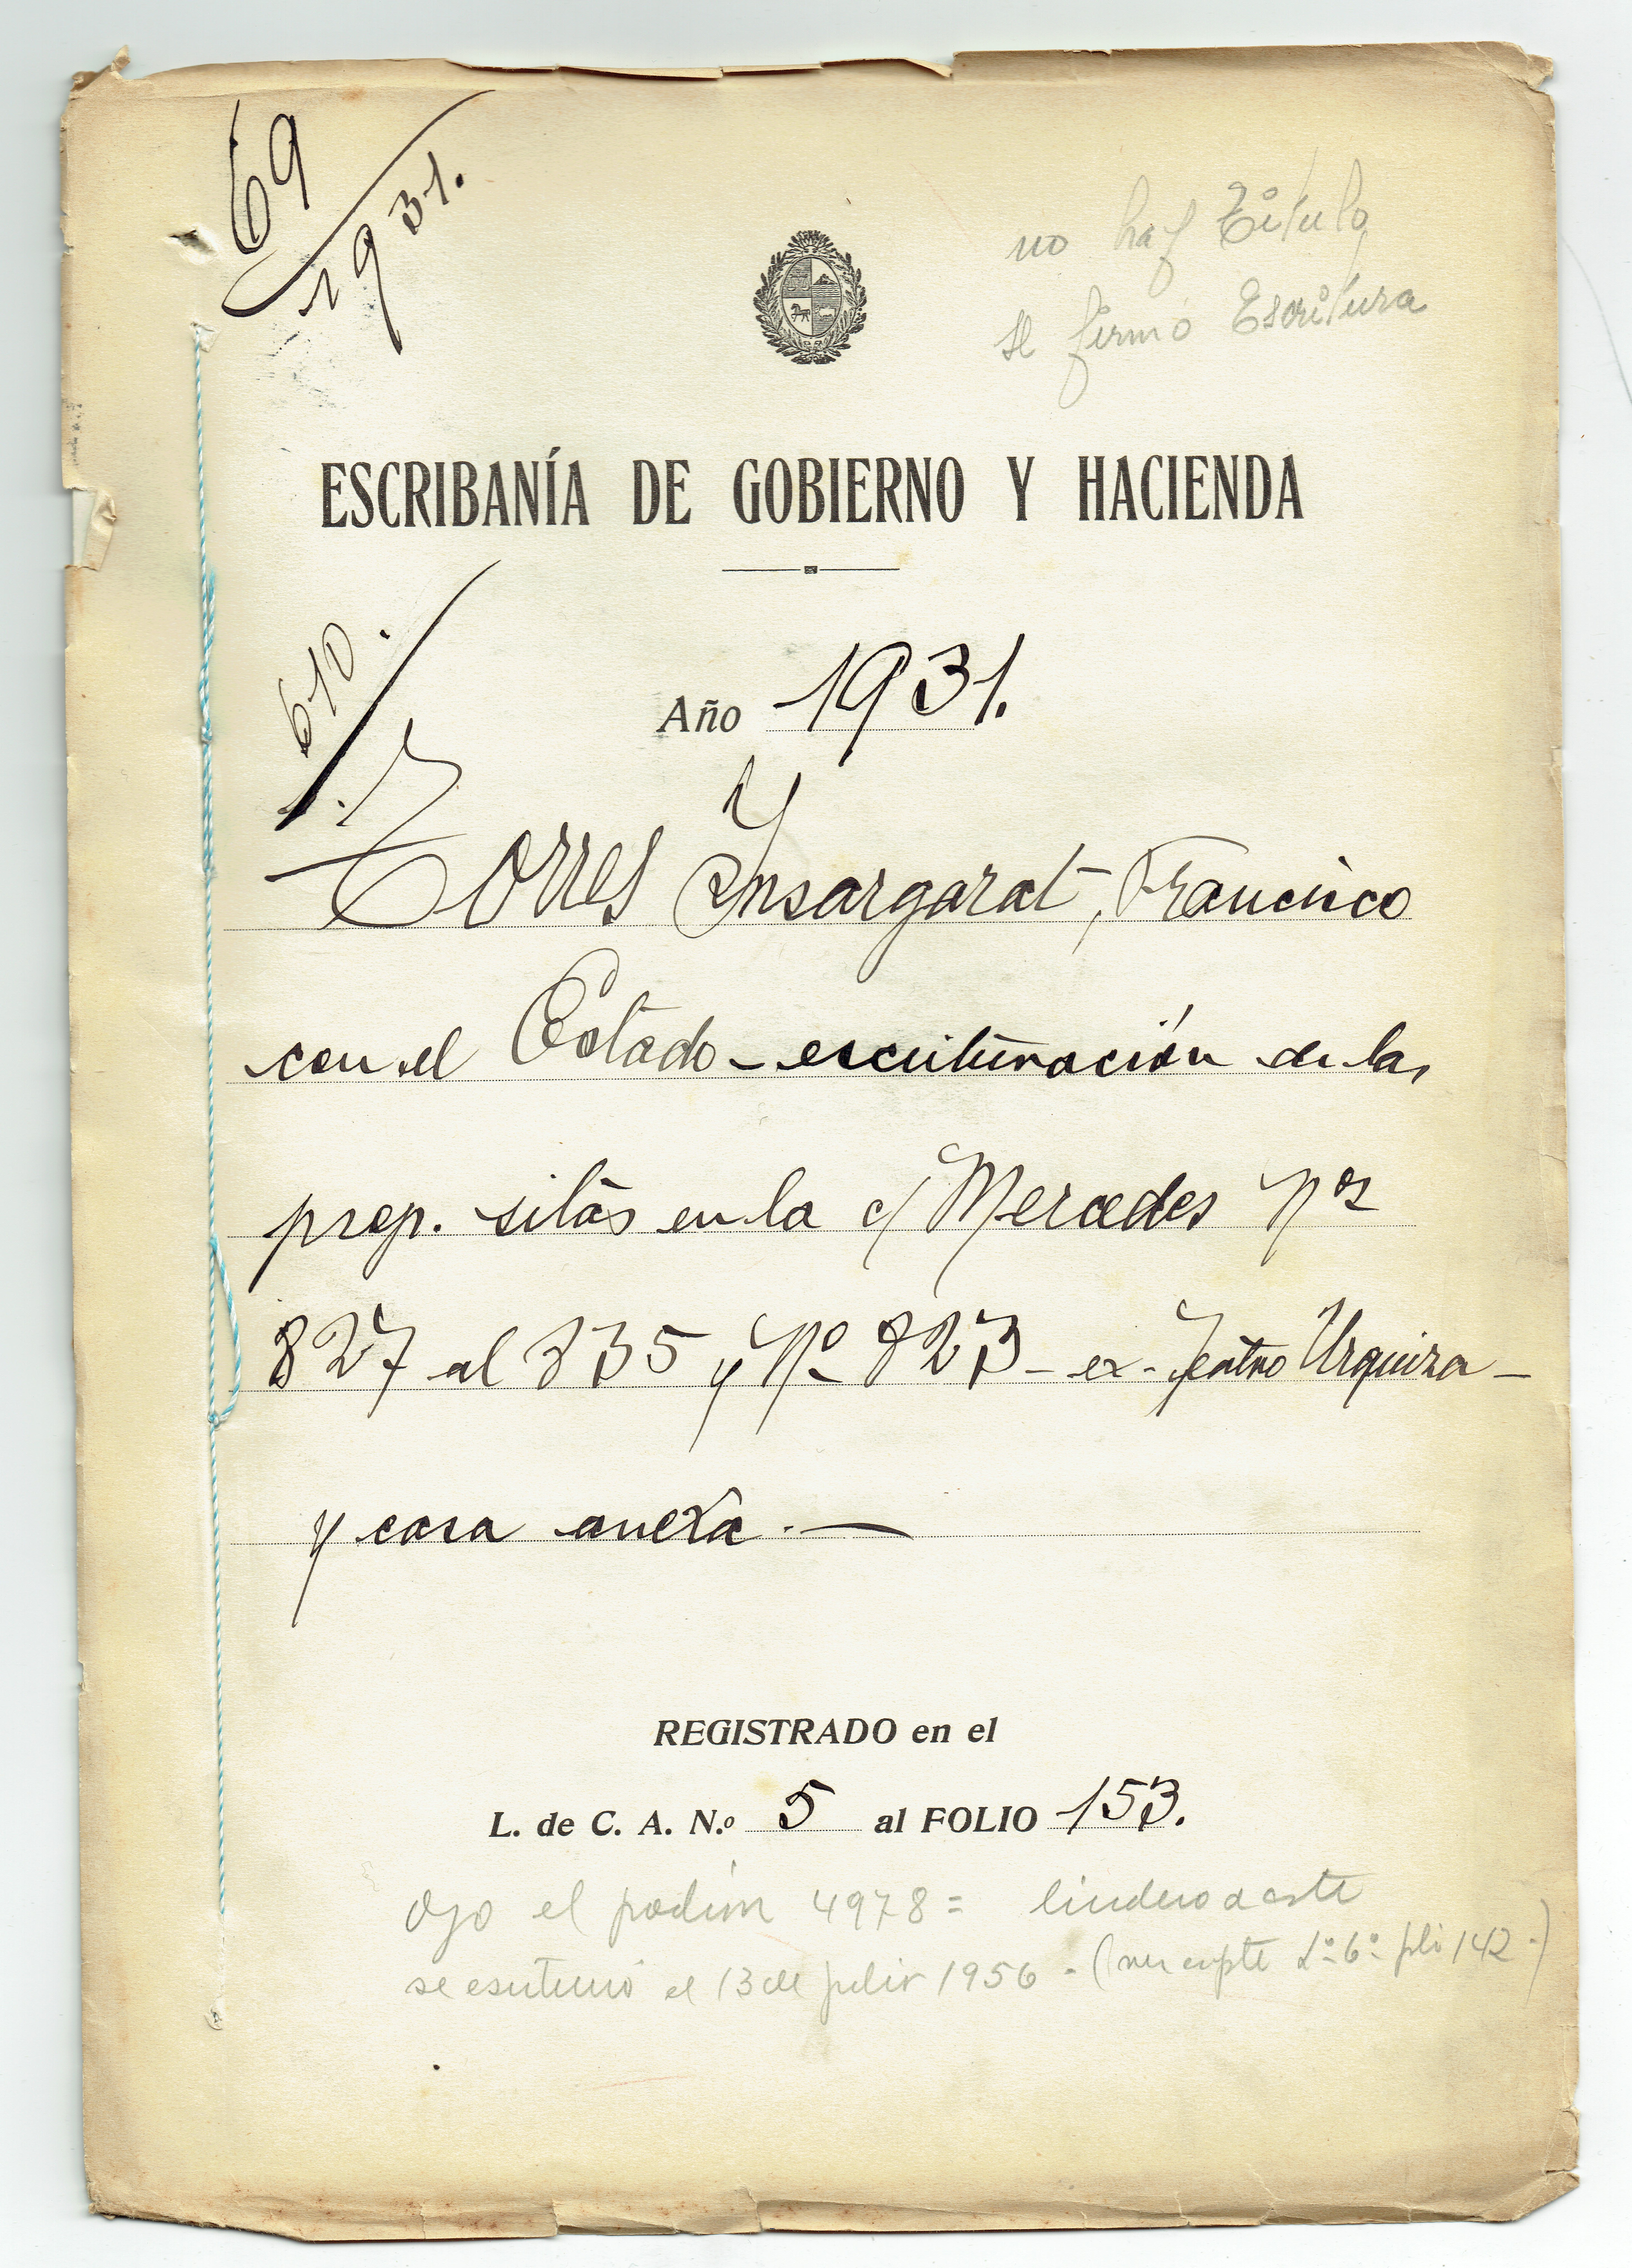 69
1931.
no hay Título
se firmó Escritura
ESCRIBANÍA DE GOBIERNO Y HACIENDA
610.
Año 1931.
Torres Ynsargarat, Francisco
con el Estado - escrituración de las
prop. sitas en la c/ Mercedes Nos
827 al 835 y Nº 823 - ex-Teatro Urquiza -
y casa anexa. —
REGISTRADO en el
L. de C. A. N.º 5 al FOLIO 153.
Ojo el padrón 4978 = lindero a este
se escrituró el 13 de julio 1956 - (ver expte 1º 6º fol 142 -)